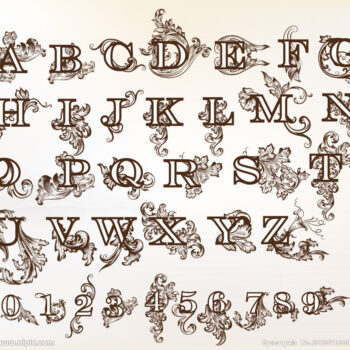 A B C D E F G
H I J K L M N
O P Q R S T
U V W X Y Z
0 1 2 3 4 5 6 7 8 9
www.nipic.com